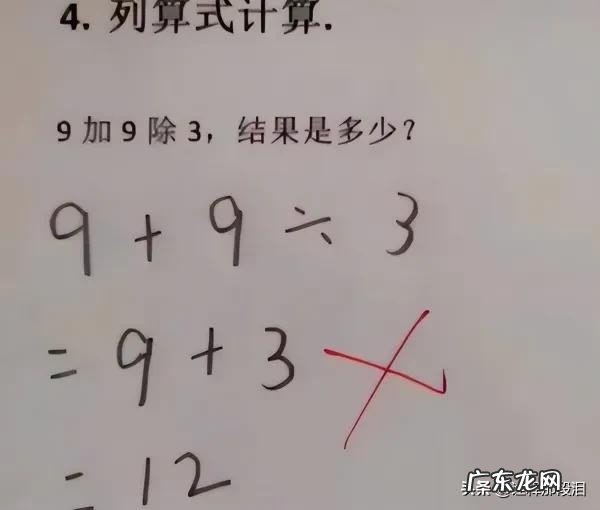 4. 列算式计算.
9 加 9 除 3，结果是多少？
9 + 9 ÷ 3
= 9 + 3
= 12
广东龙网